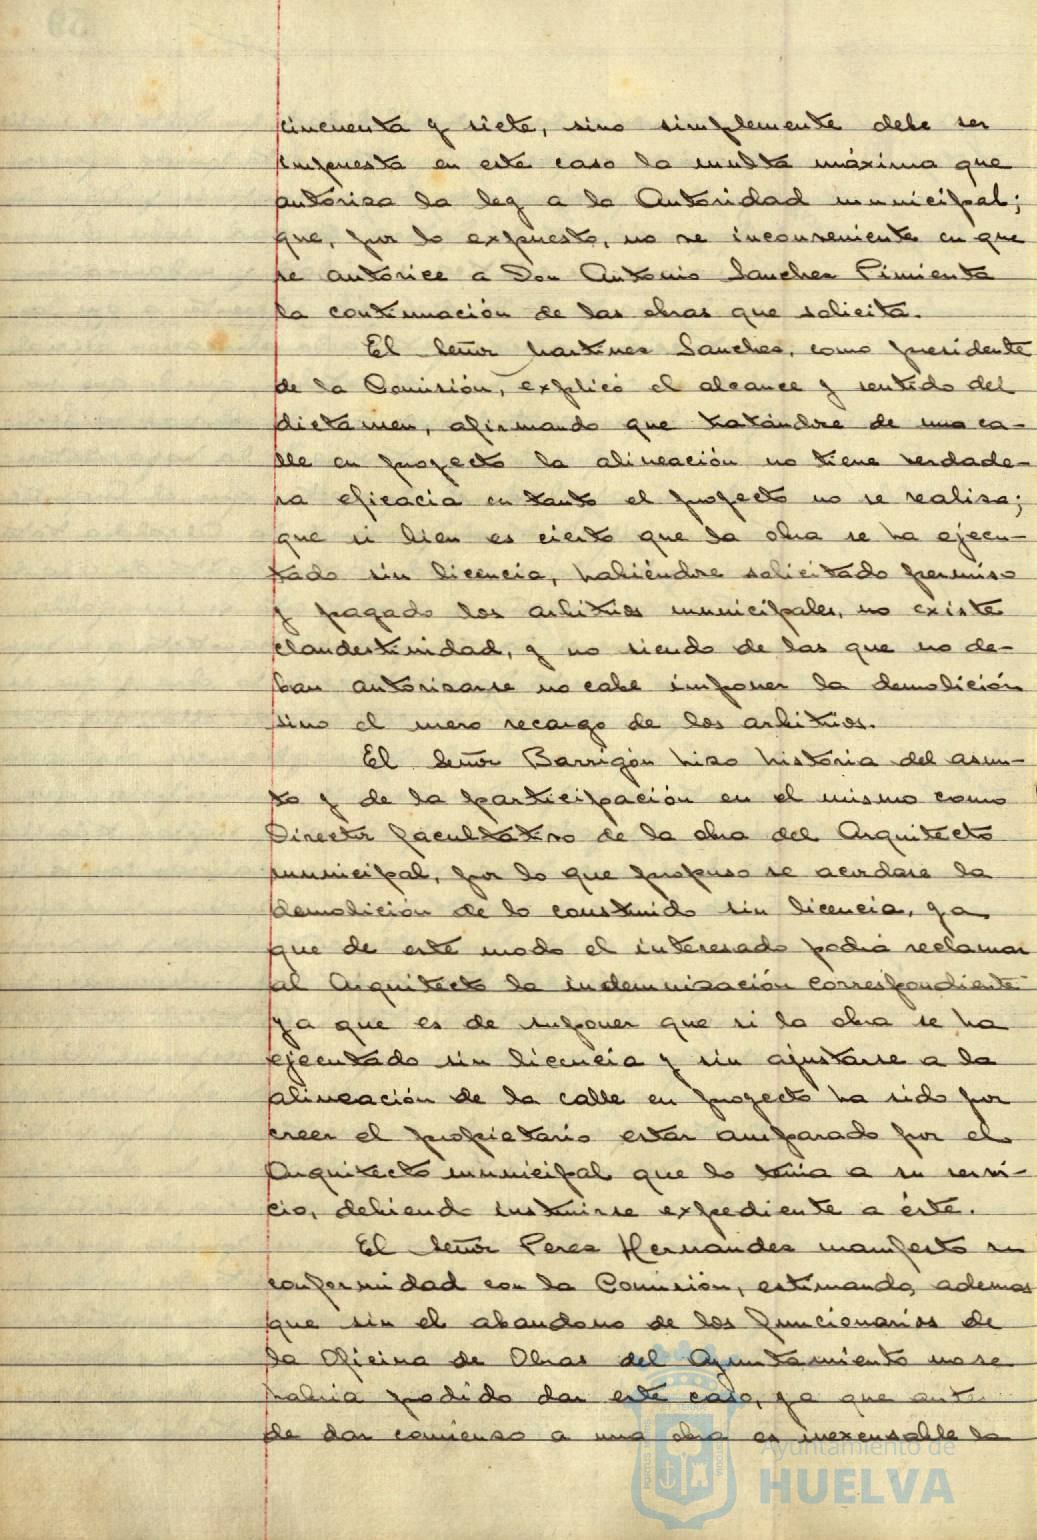 cincuenta y siete, sino simplemente debe ser
impuesta en este caso la multa máxima que
autorisa la ley a la Autoridad municipal;
que, por lo expuesto, no ve inconveniente en que
se autorice a Don Antonio Sanchez Pimienta
la continuación de las obras que solicita.
El Señor Martinez Sanchez, como presidente
de la Comisión, explicó el alcance y sentido del
dictamen, afirmando que tratándose de una ca-
lle en proyecto la alineación no tiene verdade-
ra eficacia en tanto el proyecto no se realisa;
que si bien es cierto que la obra se ha ejecu-
tado sin licencia, habiéndose solicitado permiso
y pagado los arbitrios municipales, no existe
clandestinidad, y no siendo de las que no de-
ban autorisarse no cabe imponer la demolición
sino el mero recargo de los arbitrios.
El Señor Barrigón hizo historia del asun-
to y de la participación en el mismo como
Director facultativo de la obra del Arquitecto
municipal, por lo que propuso se acordase la
demolición de lo construido sin licencia, ya
que de este modo el interesado podia reclamar
al Arquitecto la indemnisación correspondiente
ya que es de suponer que si la obra se ha
ejecutado sin licencia y sin ajustarse a la
alineación de la calle en proyecto ha sido por
creer el propietario estar amparado por el
Arquitecto municipal que lo tenia a su servi-
cio, debiendo instruirse expediente a éste.
El Señor Perez Hernandez manifestó su
conformidad con la Comisión, estimando, ademas
que sin el abandono de los funcionarios de
la Oficina de Obras del Ayuntamiento no se
habria podido dar este caso, ya que antes
de dar comienso a una obra es inexcusable la
Ayuntamiento de
HUELVA